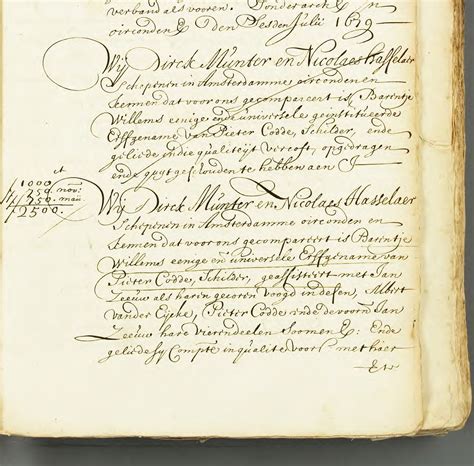 verband als vooren. Sonderarch En
oirconden &c den sesden Julij 1679
Wij Dirck Munter en Nicolaes Hasselaer
Schepenen in Amsterdamme oirconden en
kennen dat voor ons gecompareert is Barentje
Willems eenige ende universele geinstitueerde
Erffgename van Pieter Codde, Schilder, ende
geliede in die qualiteijt vercoft, opgedragen
ende quytgeschouden te hebben aen J
1000
750. nov:
750. mau
2500.
Wij Dirck Munter en Nicolaes Hasselaer
Schepenen in Amsterdamme oirconden en
kennen dat voor ons gecompareert is Barentje
Willems eenige en universele Erffgename van
Pieter Codde, Schilder, geassisteert met Jan
Zeeuw als haren gecoren voogd in desen, Albert
vander Eycke, Pieter Codde ende de voorn Jan
Zeeuw hare Vierendeelen Sormen &: Ende
geliede sy Compte in qualite voors met haer